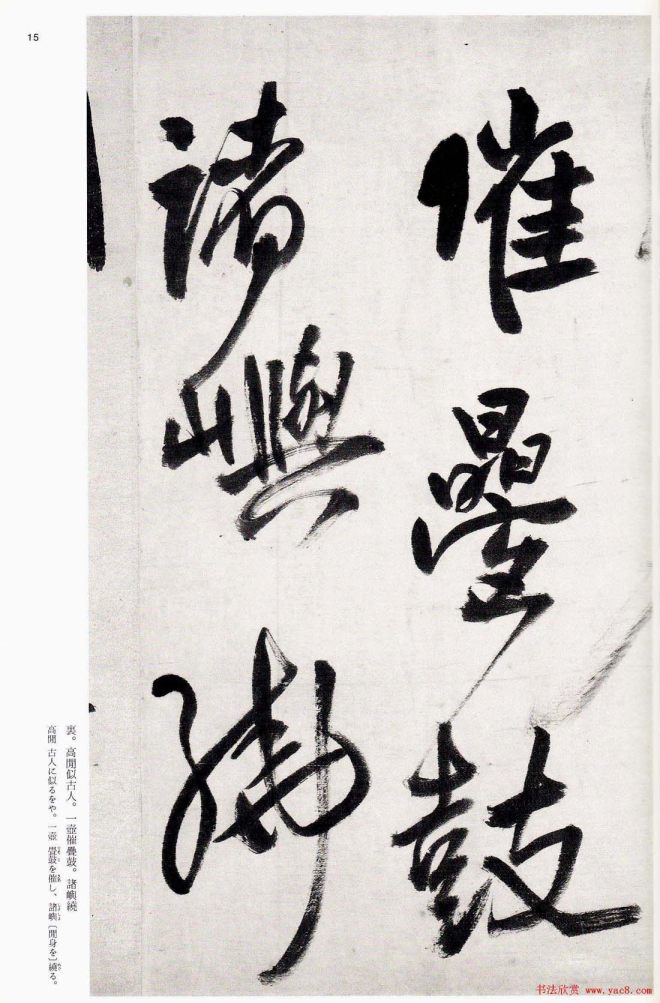 15
催疊鼓
諸嶼繞
裏。高閒似古人。一壺催疊鼓。諸嶼繞
高閒 古人に似るをや。一壺 疊鼓を催し、諸嶼［閒身を］繞る。
书法欣赏 www.yac8.com